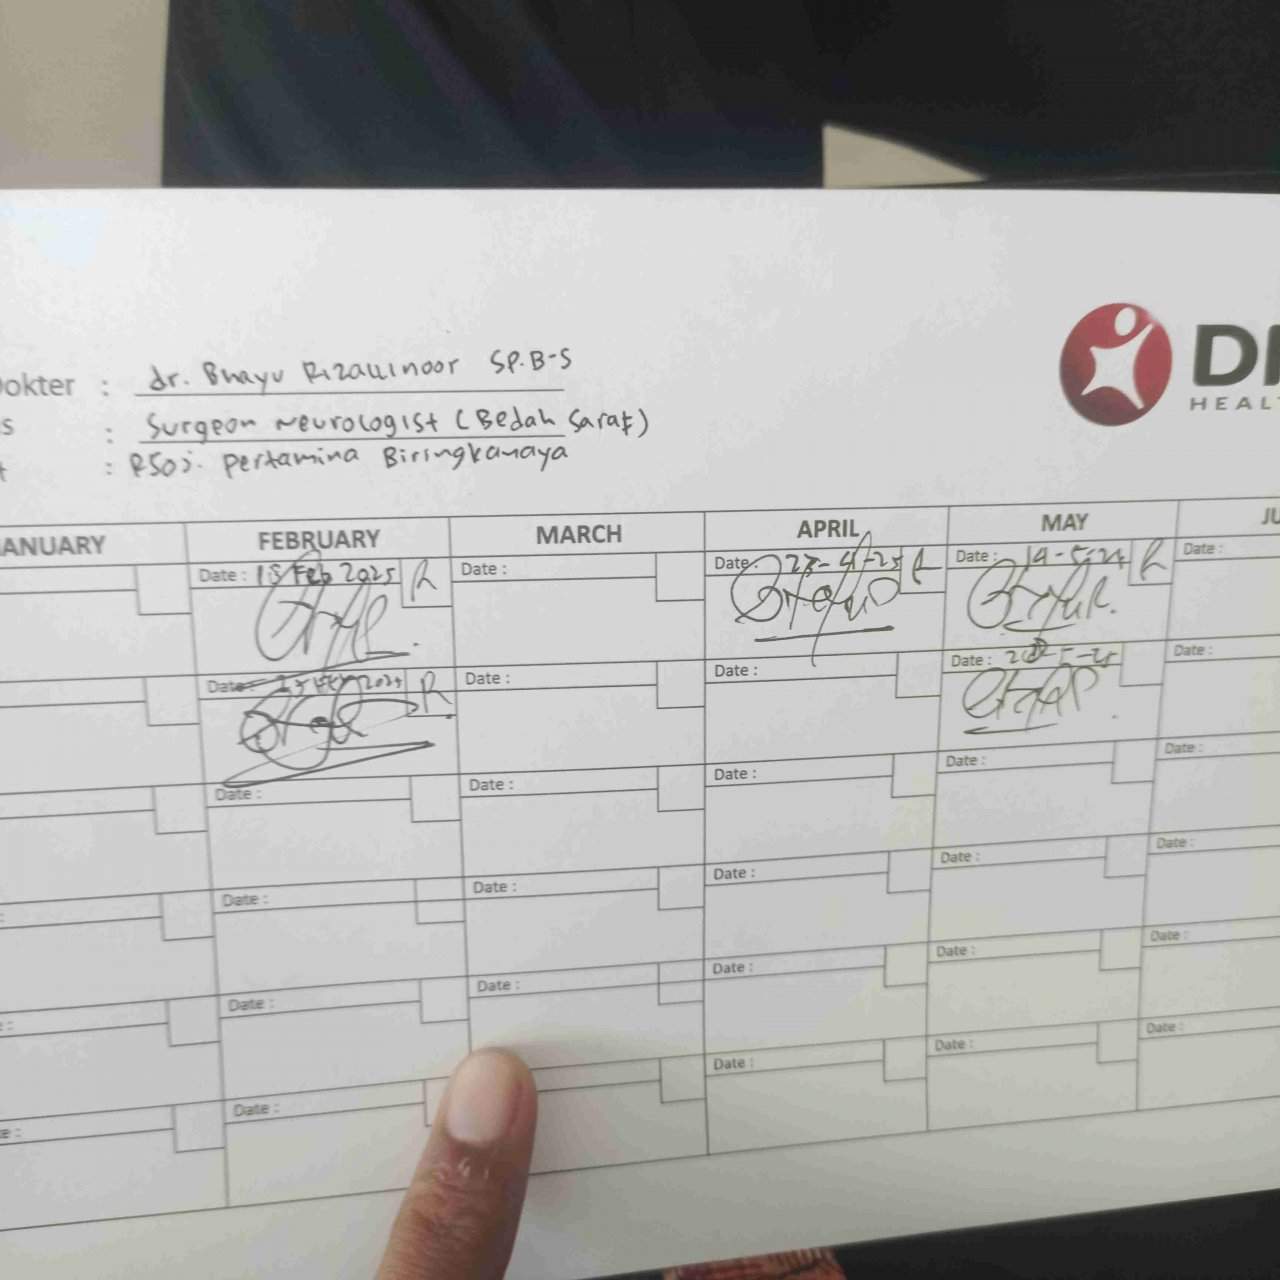 Dokter : dr. Bhayu Rizallinoor SP.B-S
s : Surgeon Neurologist (Bedah Saraf)
t : RSOJ. Pertamina Biringkanaya
DI
HEALT
ANUARY FEBRUARY MARCH APRIL MAY JU
Date : 18 Feb 2025 R Date : Date : 23-4-25 R Date : 14-5-25 R Date :
Date : Feb 2025 R Date : Date : Date : Date :
Date : Date : Date : Date : Date :
Date : Date : Date : Date : Date :
Date : Date : Date : Date : Date :
Date : Date : Date : Date :